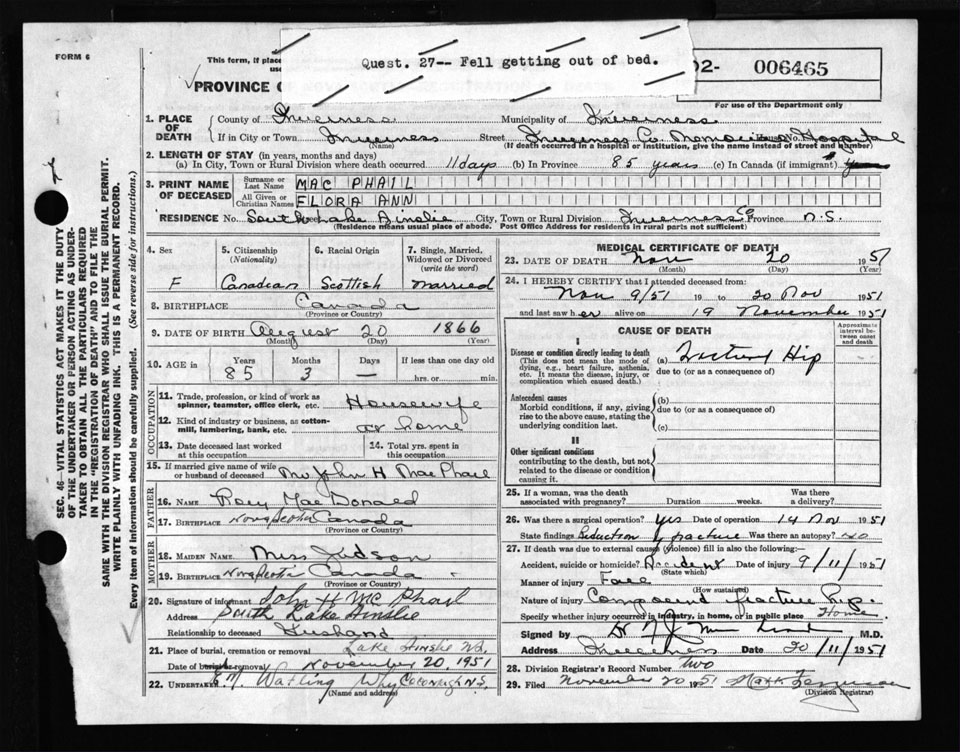 FORM 6
This form, if place
use
Quest. 27-- Fell getting out of bed.
02- 006465
PROVINCE O
For use of the Department only
1. PLACE OF DEATH
County of Inverness
Municipality of Inverness
If in City or Town Inverness
(Name)
Street Inverness Co. Memorial Hospital House No.
(If death occurred in a hospital or institution, give the name instead of street and number)
2. LENGTH OF STAY (in years, months and days)
(a) In City, Town or Rural Division where death occurred. 11 days (b) In Province 85 years (c) In Canada (if immigrant)
3. PRINT NAME OF DECEASED
Surname or Last Name MAC PHAIL
All Given or Christian Names FLORA ANN
RESIDENCE No. South Lake Ainslie City, Town or Rural Division Inverness Co Province N.S.
(Residence means usual place of abode. Post Office Address for residents in rural parts not sufficient)
4. Sex
F
5. Citizenship
(Nationality)
Canadian
6. Racial Origin
Scottish
7. Single, Married, Widowed or Divorced
(write the word)
Married
8. BIRTHPLACE Canada
(Province or Country)
9. DATE OF BIRTH August 20 1866
(Month) (Day) (Year)
10. AGE in
Years Months Days If less than one day old
85 3 — hrs. or min.
OCCUPATION
11. Trade, profession or kind of work as spinner, teamster, office clerk, etc. Housewife
12. Kind of industry or business, as cotton-mill, lumbering, bank, etc. at home
13. Date deceased last worked at this occupation
14. Total yrs. spent in this occupation
15. If married give name of wife or husband of deceased Mr John H MacPhail
FATHER
16. NAME Rory MacDonald
17. BIRTHPLACE Nova Scotia Canada
(Province or Country)
MOTHER
18. MAIDEN NAME Miss Judson
19. BIRTHPLACE Nova Scotia Canada
(Province or Country)
20. Signature of informant John H McPhail
Address South Lake Ainslie
Relationship to deceased Husband
21. Place of burial, cremation or removal Lake Ainslie
Date of burial or removal November 20, 1951
22. UNDERTAKER Watling Whycocomagh N.S.
(Name and address)
MEDICAL CERTIFICATE OF DEATH
23. DATE OF DEATH Nov 20 1951
(Month) (Day) (Year)
24. I HEREBY CERTIFY that I attended deceased from:
Nov 9/51 19 to 20 Nov 1951
and last saw her alive on 19 November 1951
CAUSE OF DEATH
Approximate interval between onset and death
I
Disease or condition directly leading to death
(This does not mean the mode of dying, e.g., heart failure, asthenia, etc. It means the disease, injury, or complication which caused death.)
(a) Fractured Hip
due to (or as a consequence of)
Antecedent causes
Morbid conditions, if any, giving rise to the above cause, stating the underlying condition last.
(b)
due to (or as a consequence of)
(c)
II
Other significant conditions
contributing to the death, but not related to the disease or condition causing it.
25. If a woman, was the death associated with pregnancy? Duration weeks. Was there a delivery?
26. Was there a surgical operation? Yes Date of operation 14 Nov 1951
State findings Reduction of fracture Was there an autopsy? no
27. If death was due to external causes (violence) fill in also the following:
Accident, suicide or homicide? Accident Date of injury 9/11/1951
(State which)
Manner of injury Fall
(How sustained)
Nature of injury Compound fracture hip.
Specify whether injury occurred in industry, in home, or in public place Home
Signed by M.D.
Address Inverness Date 20/11/1951
28. Division Registrar's Record Number two
29. Filed November 20 1951
(Division Registrar)
SEC. 46—VITAL STATISTICS ACT MAKES IT THE DUTY OF THE UNDERTAKER OR PERSON ACTING AS UNDERTAKER TO OBTAIN ALL THE PARTICULARS REQUIRED IN THE "REGISTRATION OF DEATH" AND TO FILE THE SAME WITH THE DIVISION REGISTRAR WHO SHALL ISSUE THE BURIAL PERMIT.
WRITE PLAINLY WITH UNFADING INK. THIS IS A PERMANENT RECORD.
Every item of information should be carefully supplied. (See reverse side for instructions.)